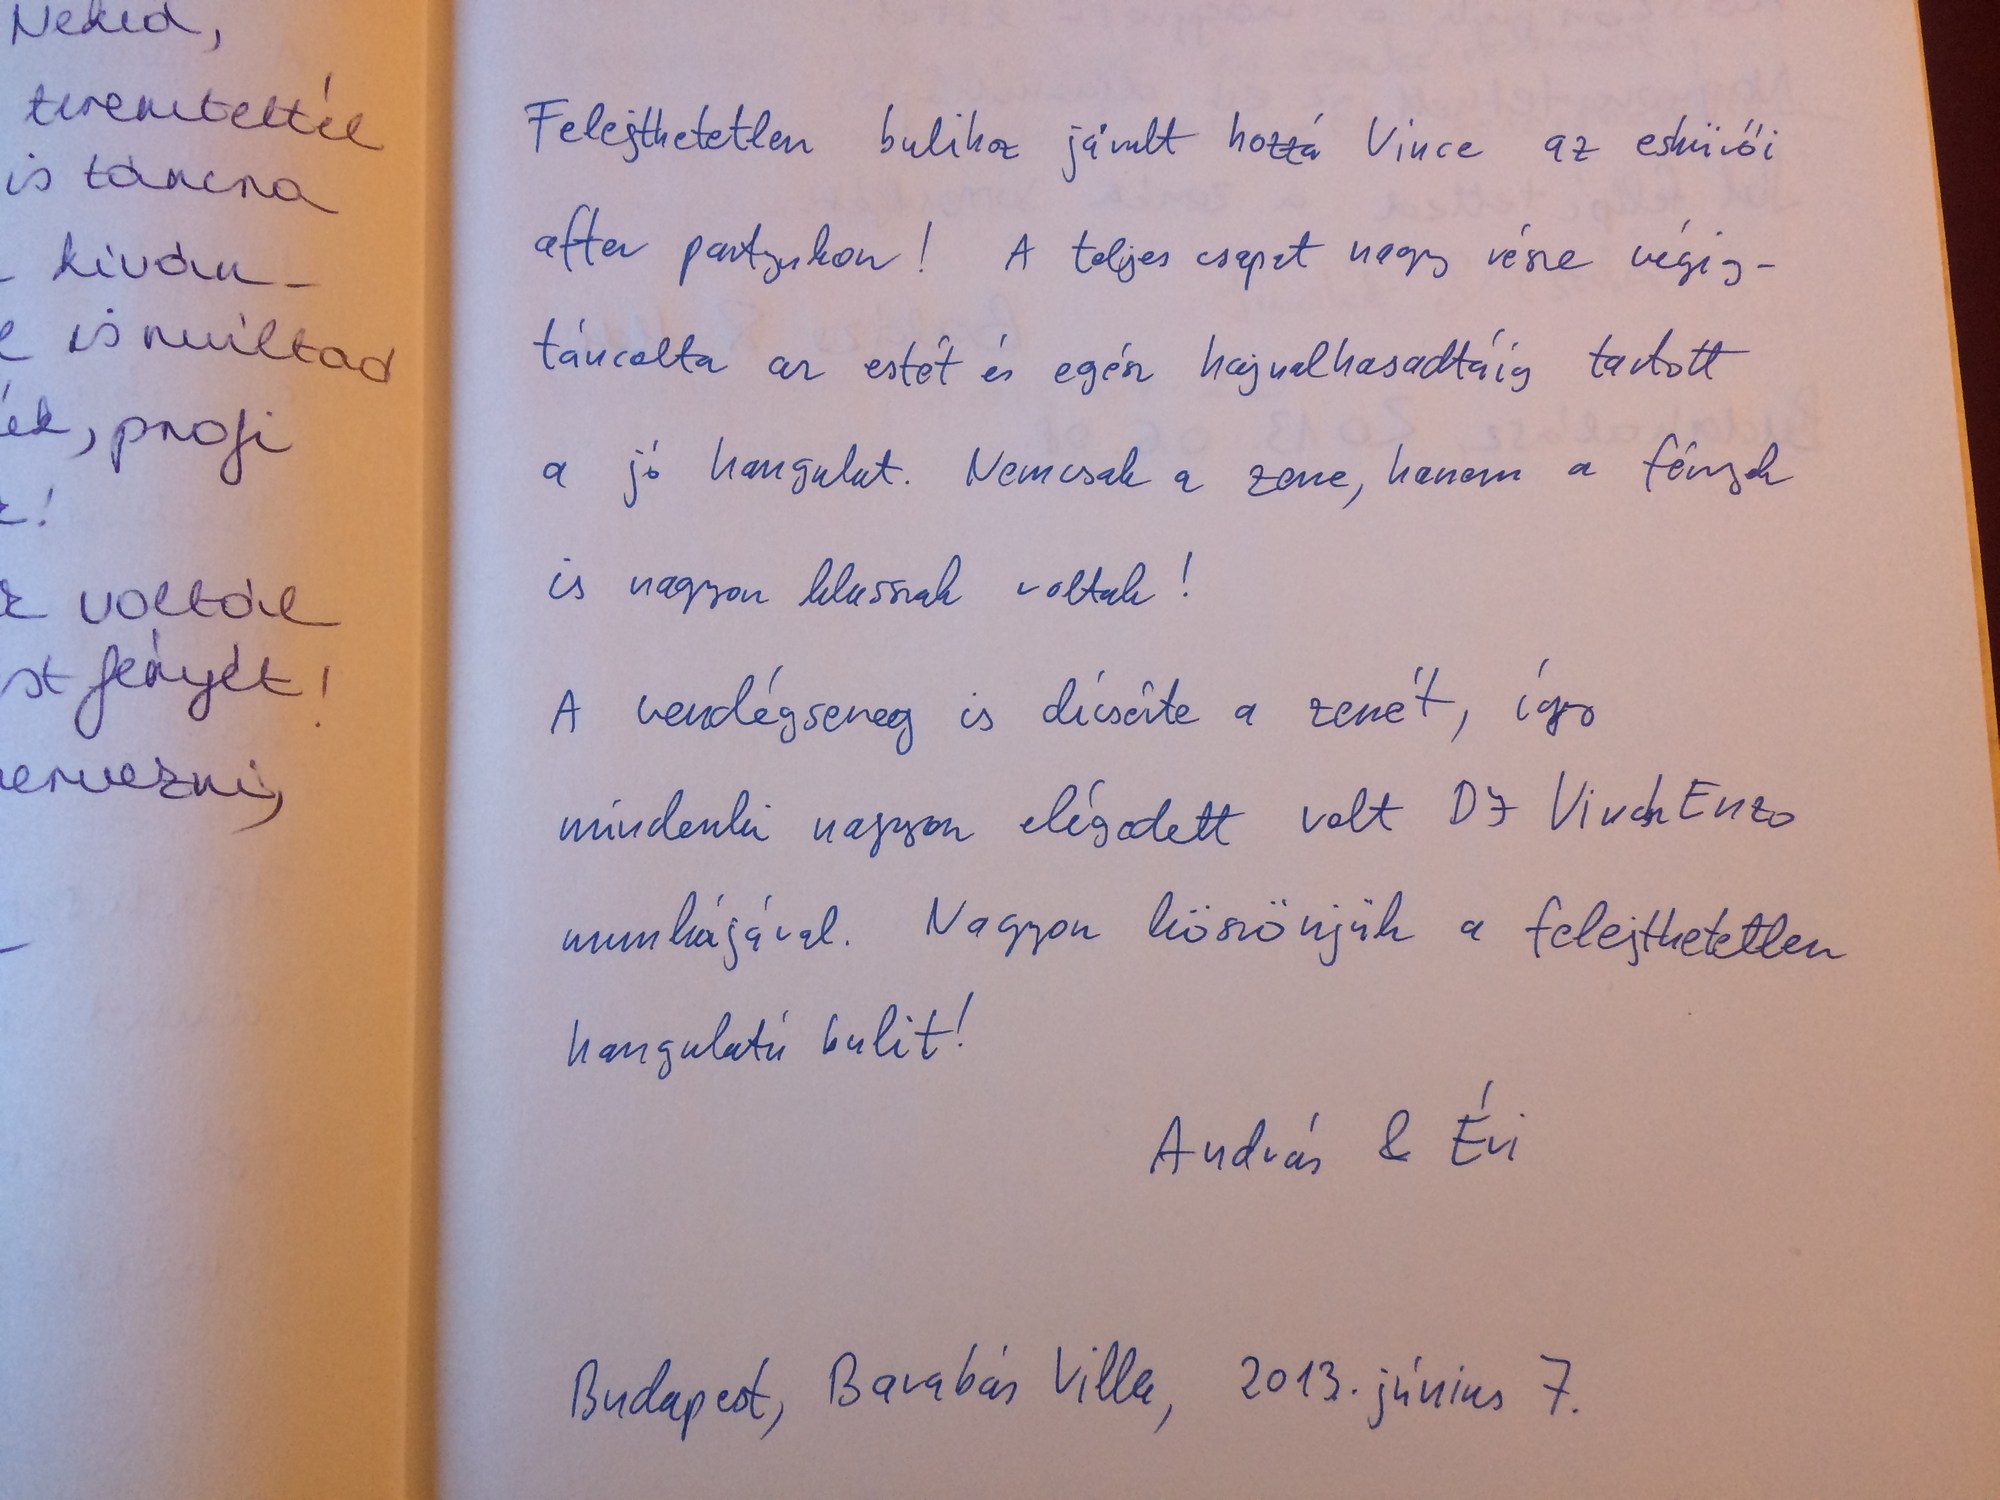 Neked,
teremtettél
is táncra
kíván-
is nyúltad
profi
!
voltál
st fényét!
Felejthetetlen bulihoz járult hozzá Vince az esküvői
after partynkon! A teljes csapat nagy része végig-
táncolta az estét és egész hajnalhasadtáig tartott
a jó hangulat. Nemcsak a zene, hanem a fények
is nagyon klasszak voltak!
A vendégsereg is dícsérte a zenét, így
mindenki nagyon elégedett volt DJ VinchEnzo
munkájával. Nagyon köszönjük a felejthetetlen
hangulatú bulit!
András & Évi
Budapest, Barabás Villa, 2013. június 7.